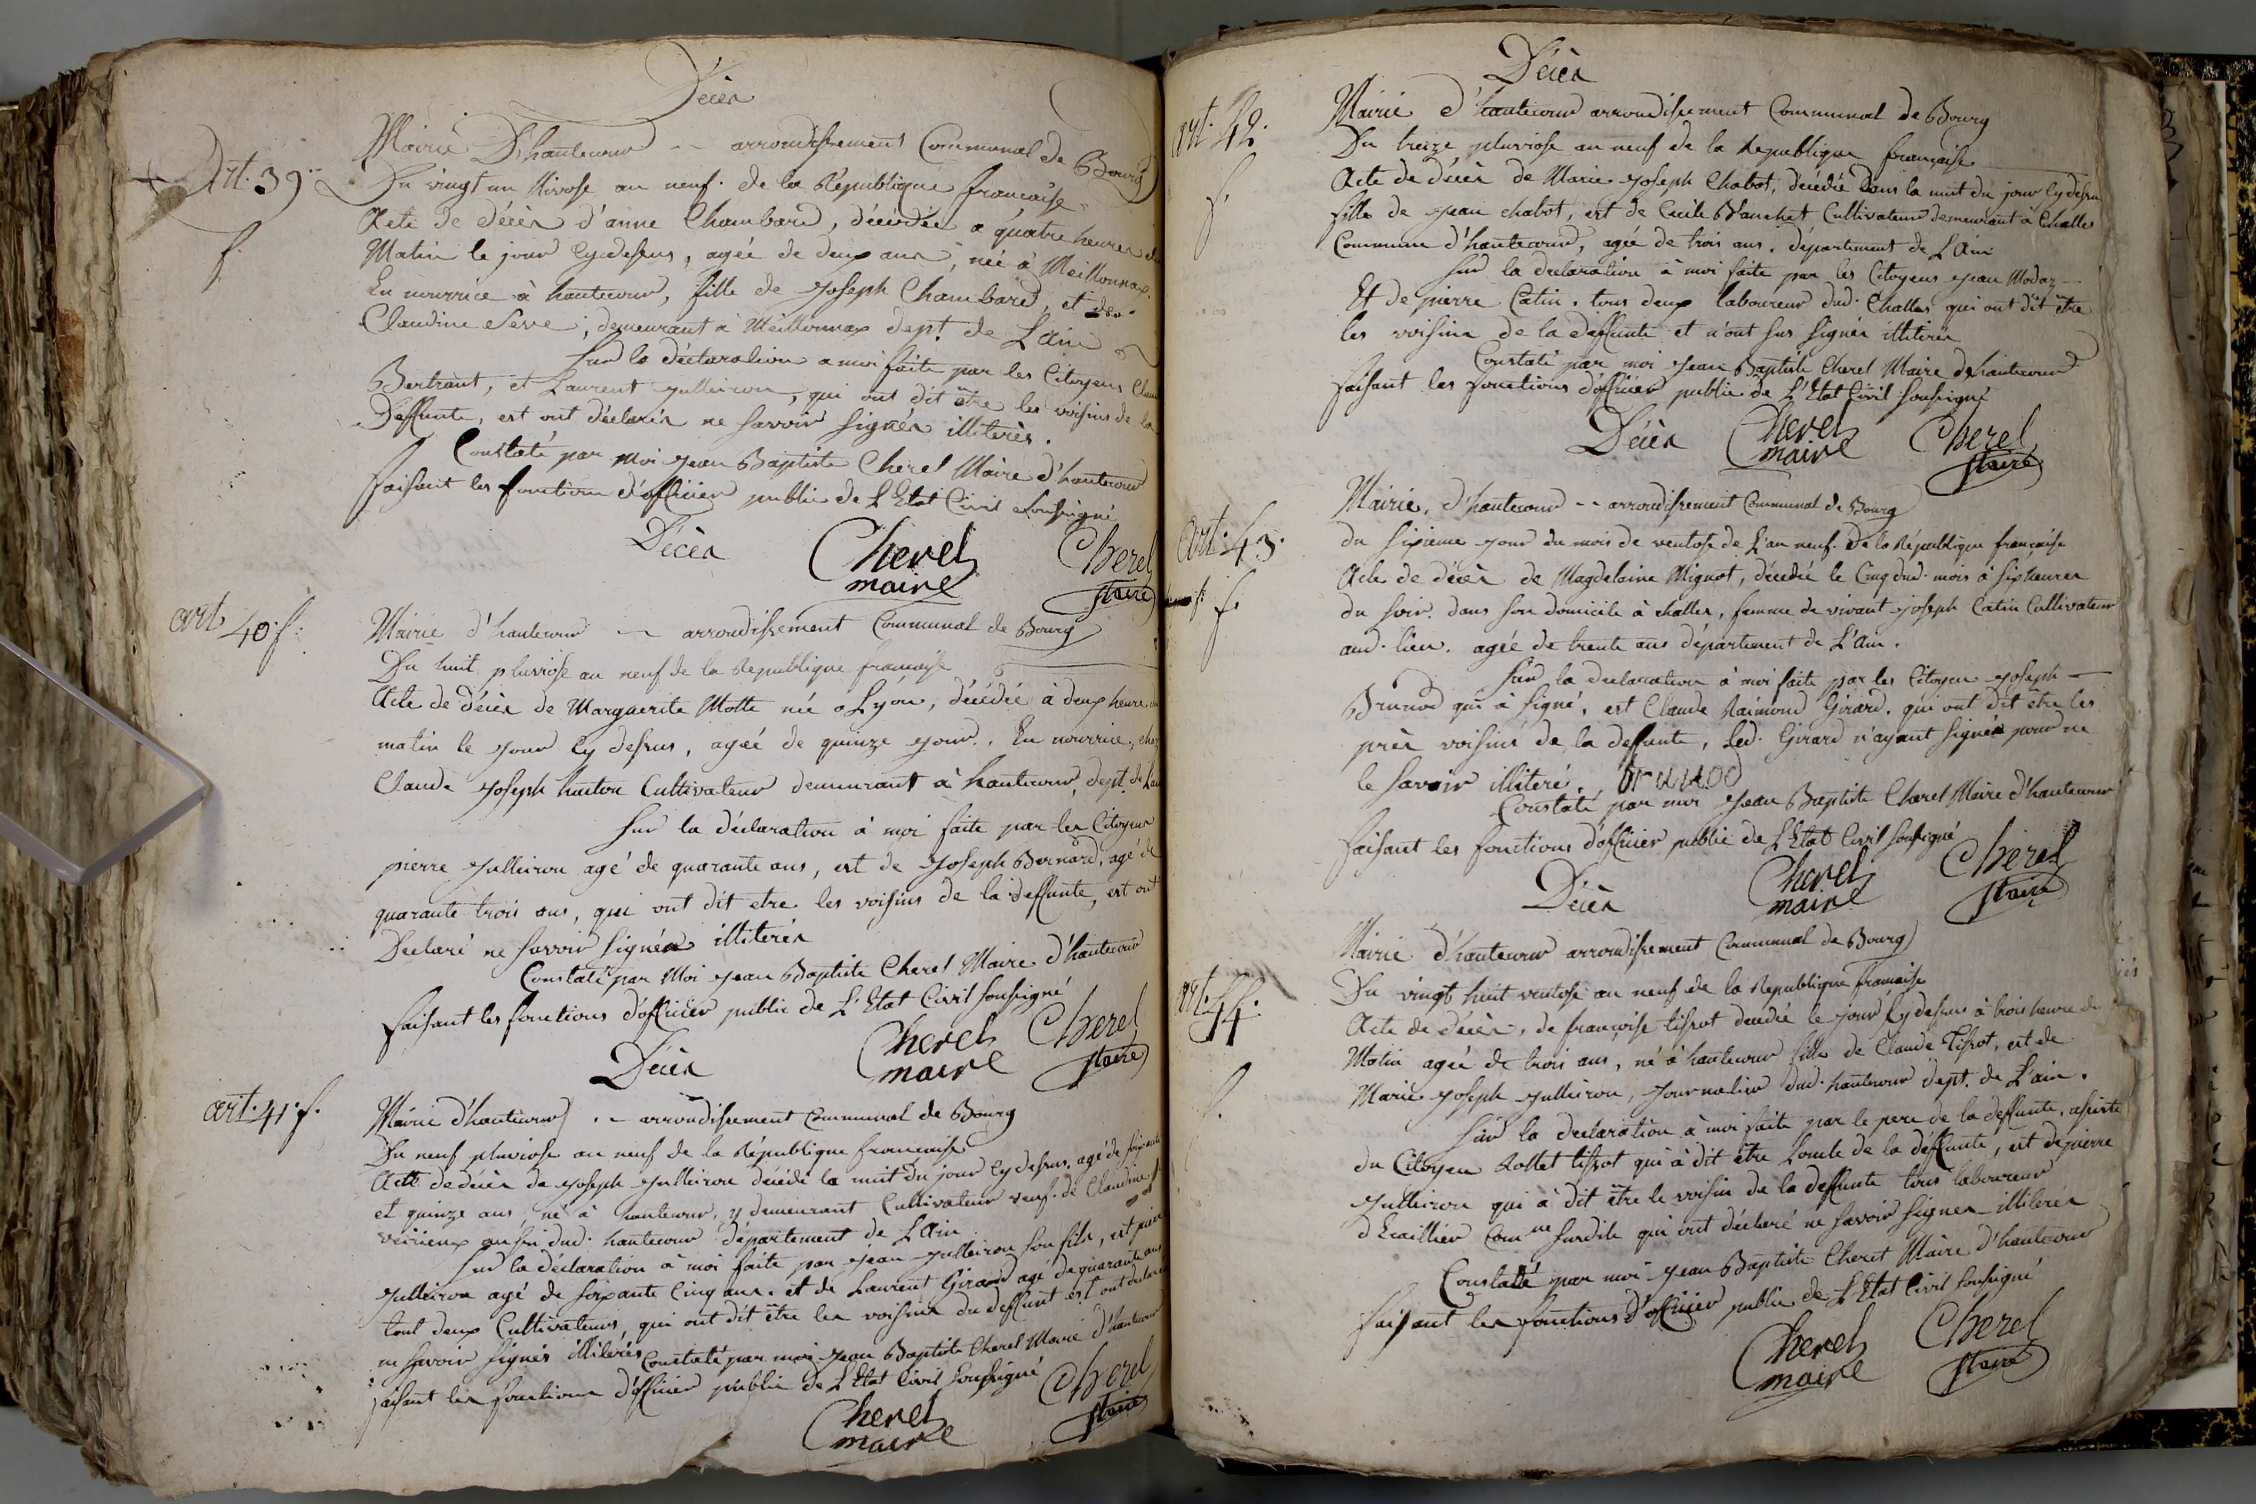 Décès
Art. 39.
Mairie D'hautecour -- arrondissement Communal de Bourg
Du vingt un Nivose an neuf. de la République française
Acte de décès d'anne Chambard, décédée a quatre heures du
Matin le jour cydessus, agée de deux ans, née à Meillonnax.
En nourrice à hautecour, fille de Joseph Chambard, et de
Claudine Seve, demeurant à Meillonnax dept. de L'ain
Sur la déclaration a moi faite par les Citoyens
Bertrant, et Laurent Julliron, qui ont dit être les voisins de la
Deffunte, est ont déclarés ne savoir signés illiterès.
Constaté par Moi Jean Baptiste Cherel Maire d'hautecour
faisant les fonction d'officier public de L'Etat Civil Soussigné
Décès
Cherel
maire
Cherel
art. 40. f.
Mairie d'hautecour -- arrondissement Communal de Bourg
Du huit pluviose an neuf de la Republique française
Acte de décès de Marguerite Motte né a Lyon, décédée à deux heure
matin le jour cy dessus, agée de quinze jour. En nourrice, chez
Claude Joseph huiton Cultivateur demeurant à hautecour, dept. de L'ain
Sur la déclaration à moi faite par les Citoyens
pierre Julliron agé de quarante ans, est de Joseph Bernard, agé de
quarante trois ans, qui ont dit etre les voisins de la deffunte, est ont
Declaré ne savoir signés illiterés
Constaté par Moi Jean Baptiste Cherel Maire d'hautecour
faisant les fonctions d'officier public de L'Etat Civil soussigné
Décès
Cherel
maire
Cherel
art. 41. f.
Mairie d'hautecour -- arrondissement Communal de Bourg
Du neuf pluviose an neuf de la République française
Acte de décès de Joseph Julliron décédé la nuit du jour cy dessus. agé de soixante
et quinze ans né à hautecour, y demeurant Cultivateur veuf de Claudine
dud. hautecour département de L'Ain
Sur la déclaration à moi faite par Jean Julliron son fils, est pierre
Julliron agé de soixante cinq ans. et de Laurent Girard agé de quarante ans
tout deux Cultivateurs, qui ont dit être les voisins du deffunt est ont déclaré
ne savoir signés illiterés Constaté par moi Jean Baptiste Cherel Maire d'hautecour
faisant les fonctions d'officier public de L'Etat Civil soussigné
Cherel
maire
Cherel
Décès
art. 42.
f.
Mairie d'hautecour arrondissement Communal de Bourg
Du treize pluviose an neuf de la Republique française
Acte de décès de Marie Joseph Chabot, décédée dans la nuit du jour cydessu
fille de Jean chabot, est de Cecile Blanchet Cultivateur demeurant à Challes
Commune d'hautecour, agée de trois ans. département de L'Ain
Sur la declaration à moi faite par les Citoyens Jean Modaz
Et de pierre Catin. tous deux laboureur dud. Challes qui ont dit être
les voisins de la deffunte et n'ont sus signés illiterés
Constaté par moi Jean Baptiste Cherel Maire d'hautecour
faisant les fonctions d'officier public de L'Etat Civil soussigné
Décès
Cherel
maire
Cherel
art. 43.
f.
Mairie, d'hautecour -- arrondissement Communal de Bourg
du sixieme jour du mois de ventose de L'an neuf. de la République française
Acte de décès de Magdelaine Mignot, décédée le Cinq dud. mois à six heures
du soir. dans son domicile à challes, femme de vivant Joseph Catin Cultivateur
aud. lieu. agée de trente ans département de L'Ain.
Sur la declaration à moi faite par les Citoyen Joseph
Brunod qui à signé. est Claude Raimond Girard. qui ont dit être les
près voisins de la deffunte, Led. Girard n'ayant signés pour ne
le savoir illiteré. brunod
Constaté par moi Jean Baptiste Cherel Maire d'hautecour
faisant les fonctions d'officier public de L'Etat Civil soussigné
Décès
Cherel
maire
Cherel
art. 44.
Mairie d'hautecour arrondissement Communal de Bourg
Du vingt huit ventose an neuf de la Republique française
Acte de décès, de françoise tissot decedée le jour cy dessus à trois heure de
Matin agée de trois ans, né à hautecour fille de Claude Tissot, est de
Marie Joseph Julliron, Journalier dud. hautecour dept. de L'ain.
Sur la declaration à moi faite par le pere de la deffunte, assisté
du Citoyen Rollet tissot qui à dit être Loncle de la deffunte, est de pierre
Julliron qui à dit être le voisin de la deffunte tous laboureur
Comne susdite qui ont déclaré ne savoir signer illiterés
Constaté par moi Jean Baptiste Cherel Maire d'hautecour
faisant les fonctions d'officier public de L'Etat Civil soussigné
Cherel
maire
Cherel